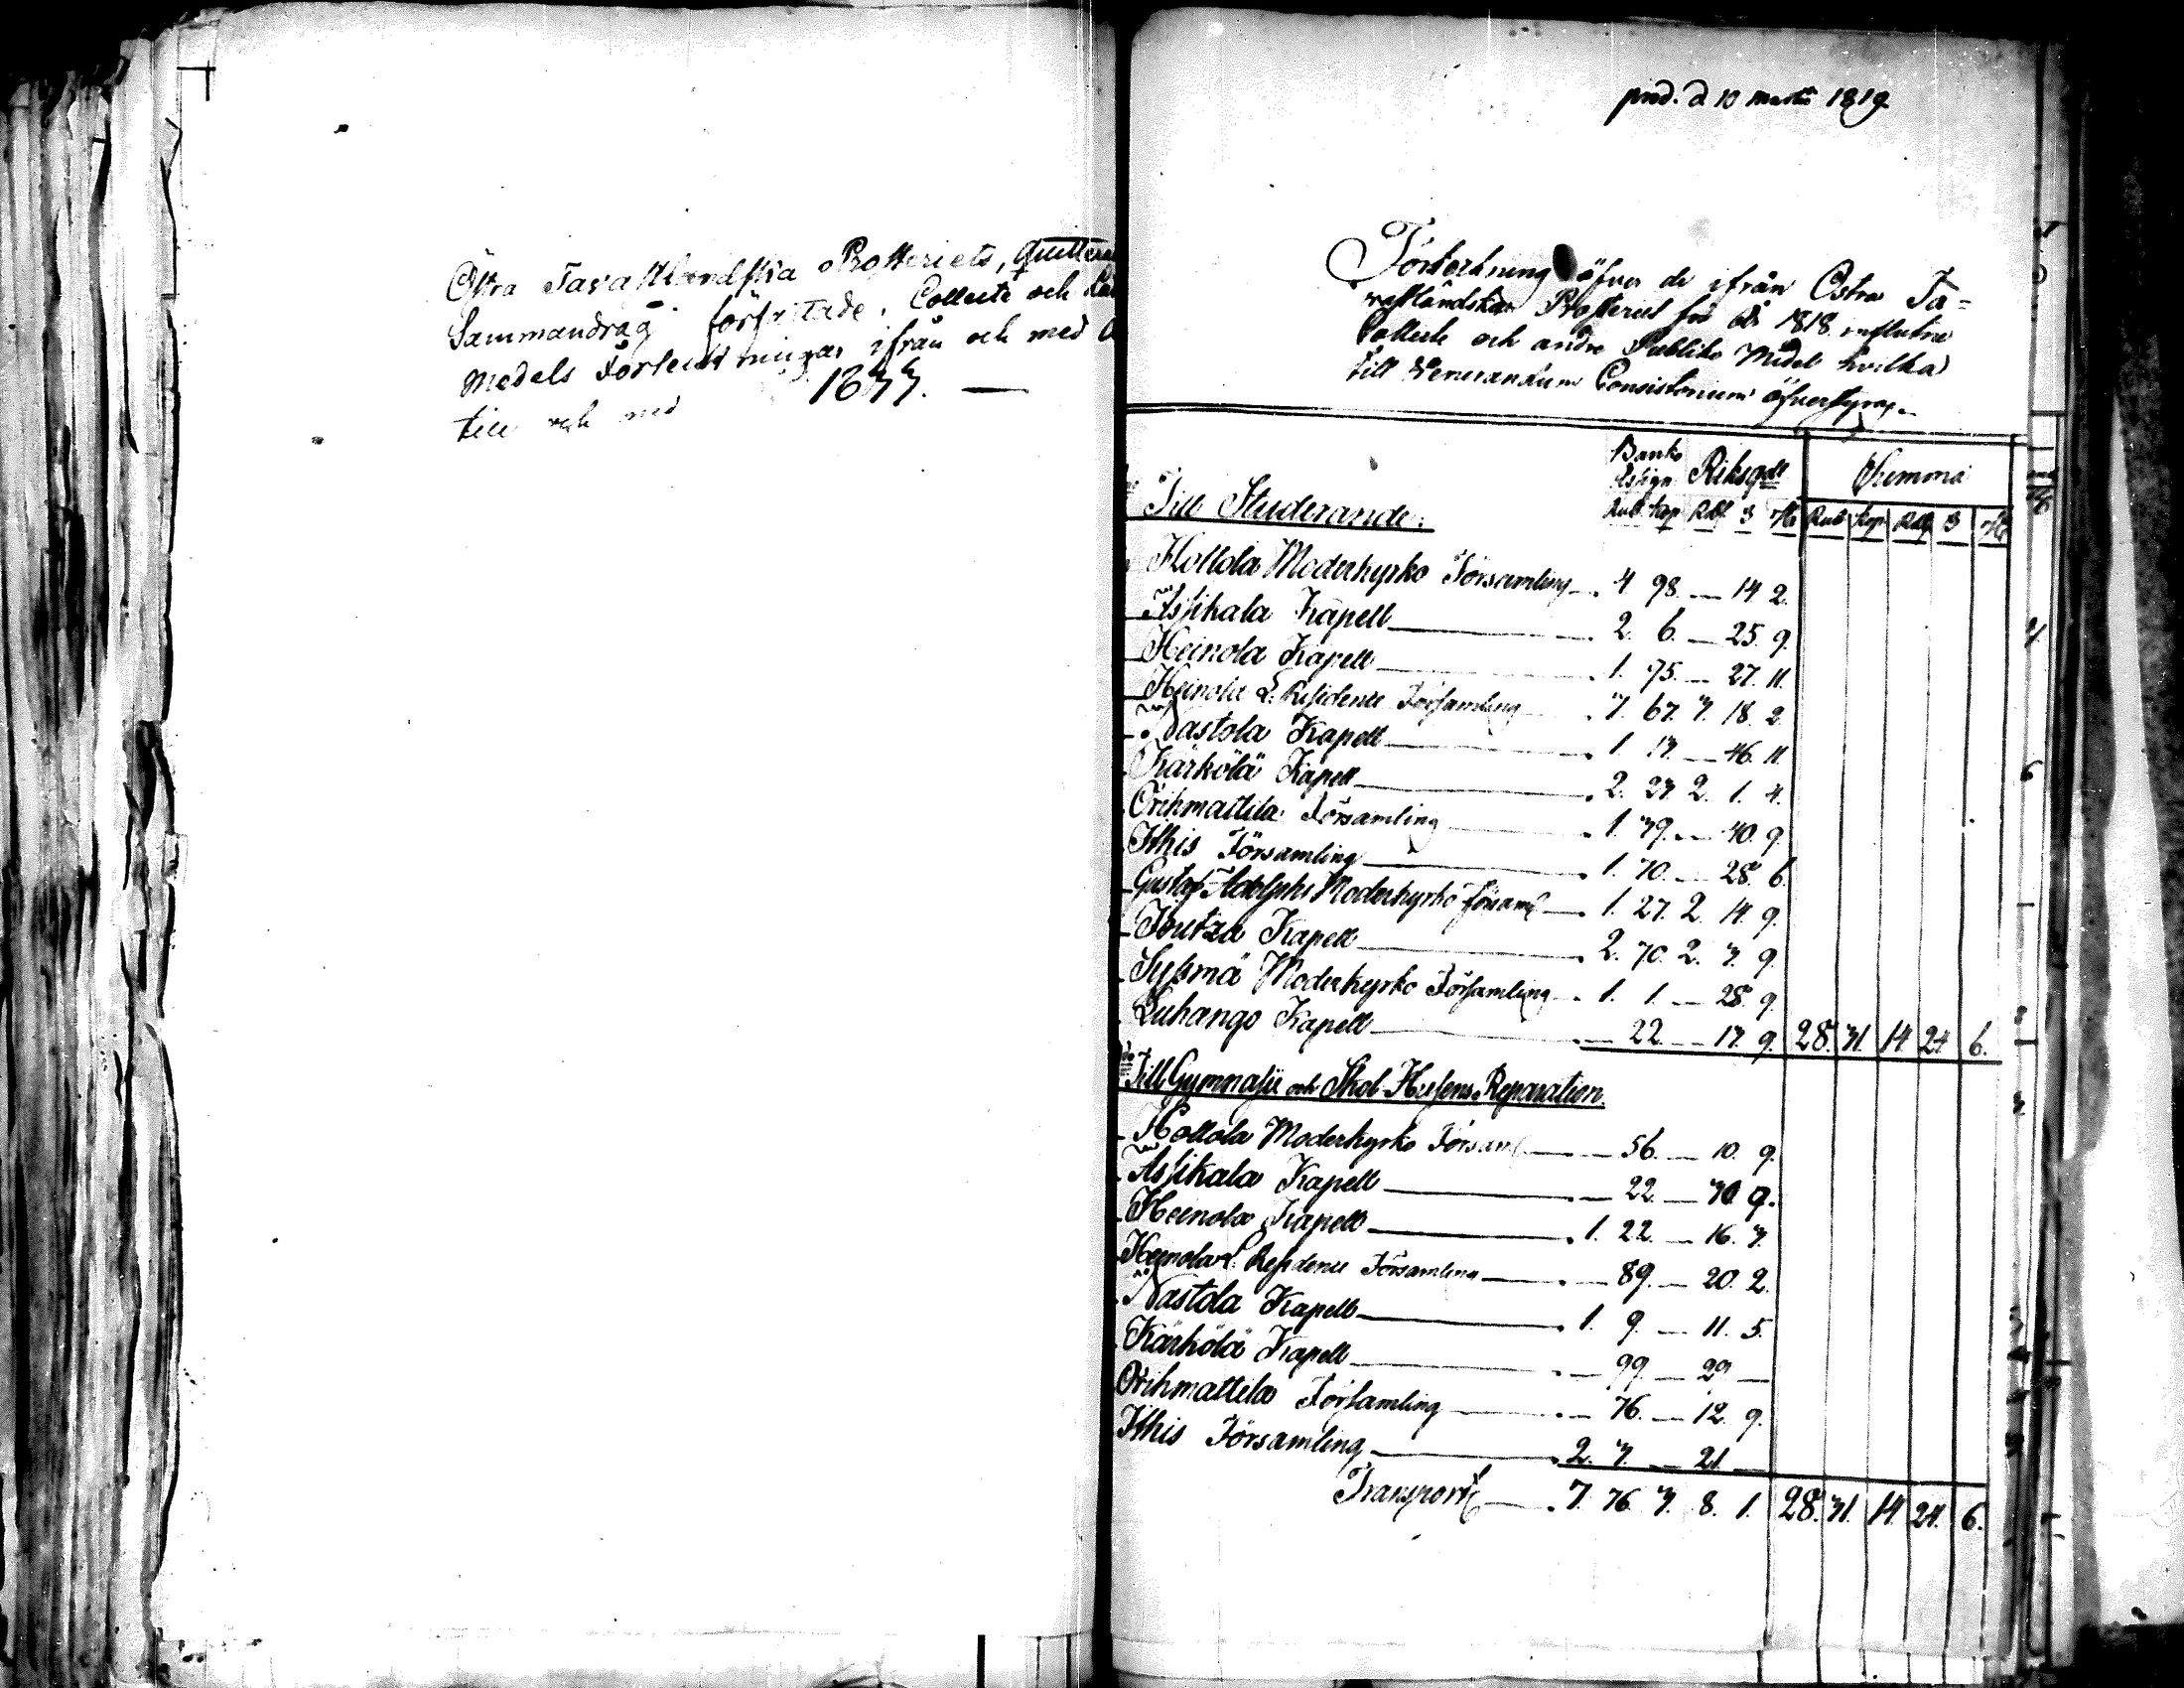 Östra Tavastländska Prosteriets,
Sammandrag författade, Collecte och
Medels Förteckningar ifrån och med
till och med 1877. —
prod. d 10 Martii 1819
Förteckning öfver de ifrån Östra Ta=
vastländska Prosteriet för År 1818 influtne
Collecte och andre Publike Medel hvilka
till Venerandum Consistorium öfversyras.
Banko Assign. Riksgäld Summa
Till Studerande. Rub Kop Rdr S Rub Kop Rdr S
Hollola Moderkyrko Församling 4 98. — 14 2.
Assikala Kapell 2. 6. — 25. 9.
Heinola Kapell 1. 75. — 27. 11.
Heinola Residence Församling 7. 67. 7. 18. 2
Nastola Kapell 1 17. — 46. 11
Kärkölä Kapell 2. 27. 2. 1. 4.
Orihmattila Församling 1. 79. — 40. 9.
Ithis Församling 1. 70. — 28. 6.
Gustaf Adolphs Moderkyrko församl 1. 27. 2. 14. 9.
Joutza Kapell 2. 70. 2. 7. 9
Sysmä Moderkyrko Församling 1. 1. — 28. 9
Luhango Kapell — 22. — 17. 9. 28. 71. 14 24 6.
Till Gymnasii och Skol-Husens Reparation.
Hollola Moderkyrko Församl — 56. — 10. 9.
Assikala Kapell — 22. — 70 9.
Heinola Kapell 1. 22. — 16. 7.
Heinola Residence Församling — 89. — 20. 2.
Nastola Kapell 1. 9. — 11. 5.
Kärkölä Kapell — 99. — 29 —
Orihmattila Församling — 76. — 12. 9.
Ithis Församling 2. 7. — 21. —
Transport 7. 76. 7. 8. 1. 28. 71. 14. 24. 6.